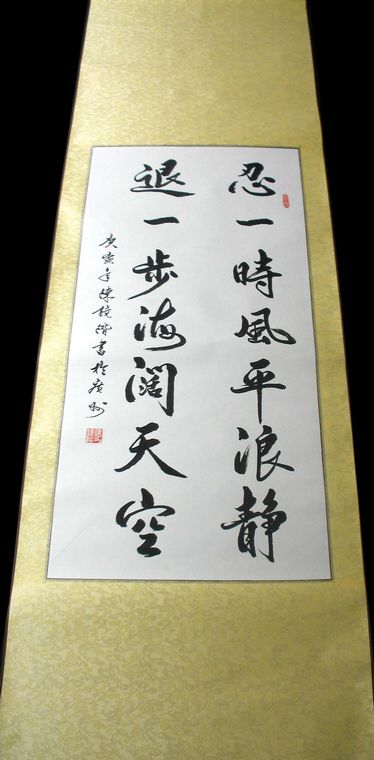 忍一時風平浪静
退一步海阔天空
庚寅年陳境階書於廣州